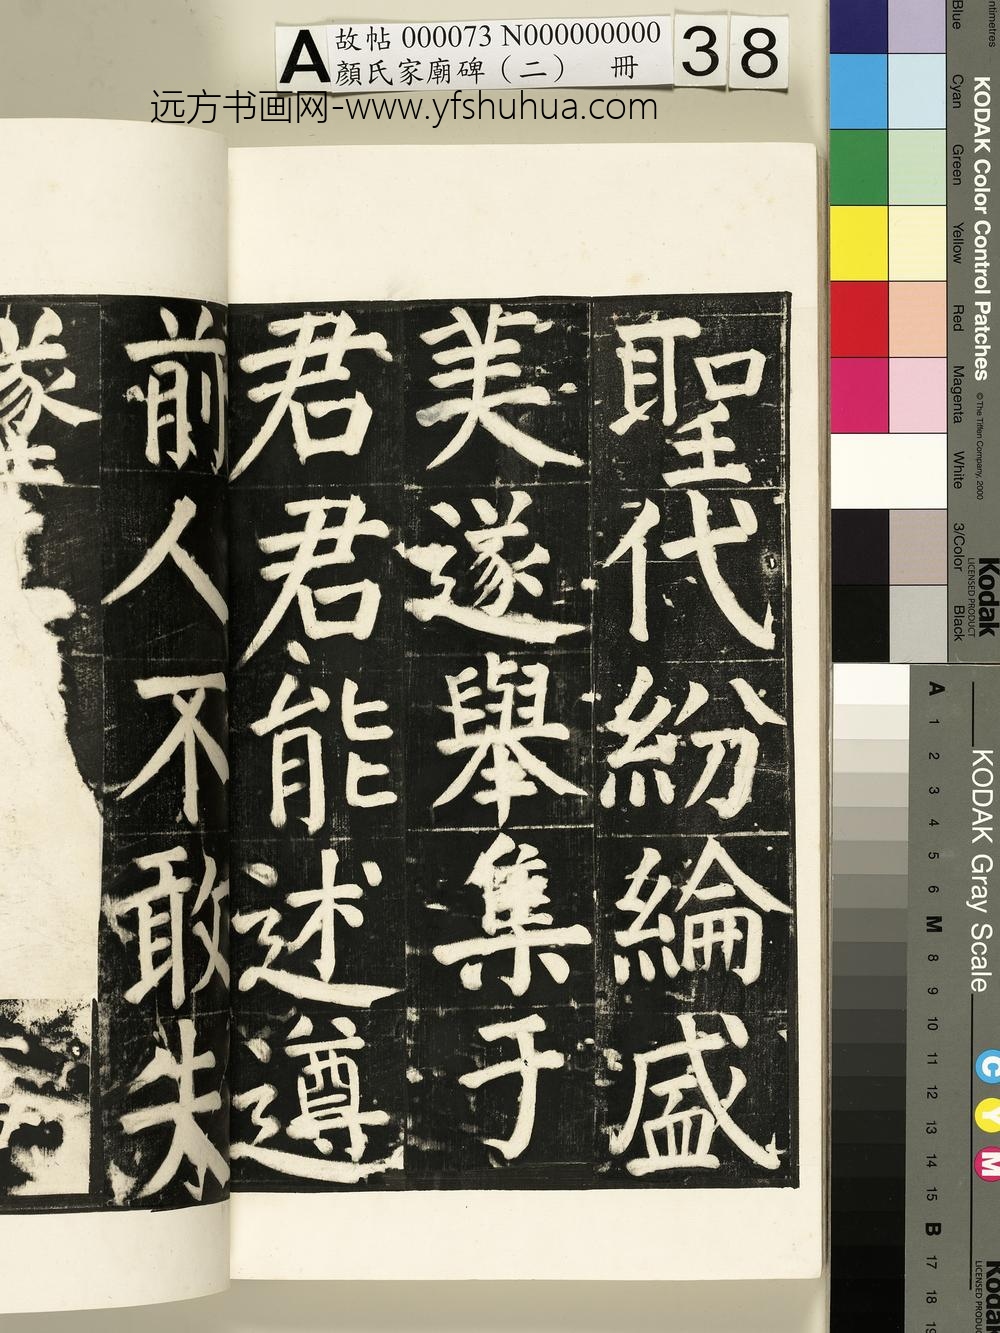 A 故帖 000073 N000000000 38
顏氏家廟碑（二） 冊
远方书画网-www.yfshuhua.com
聖代紛綸盛
美遂舉集于
君君能述遵
前人不敢失
KODAK Color Control Patches
© The Tiffen Company, 2000
Kodak
LICENSED PRODUCT
Blue Cyan Green Yellow Red Magenta White 3/Color Black
KODAK Gray Scale
A 1 2 3 4 5 6 M 8 9 10 11 12 13 14 15 B 17 18 19
C Y M
Kodak
LICENSED PRODUCT